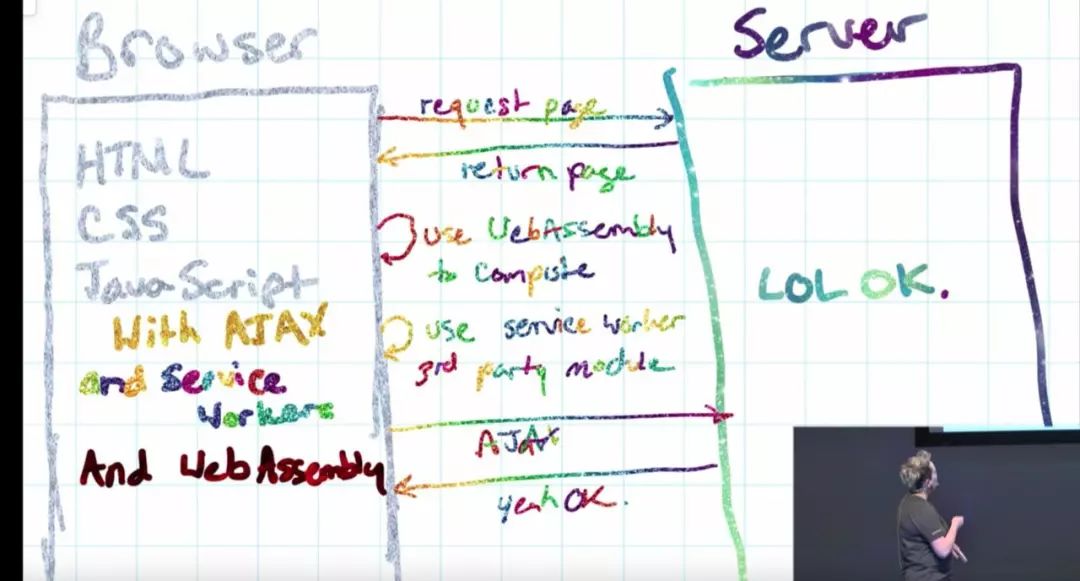 Browser
Server
request page
return page
HTML
CSS
JavaScript
With AJAX
and Service
Workers
And WebAssembly
use WebAssembly
to compute
use service worker
3rd party module
AJAX
yeah OK.
LOL OK.